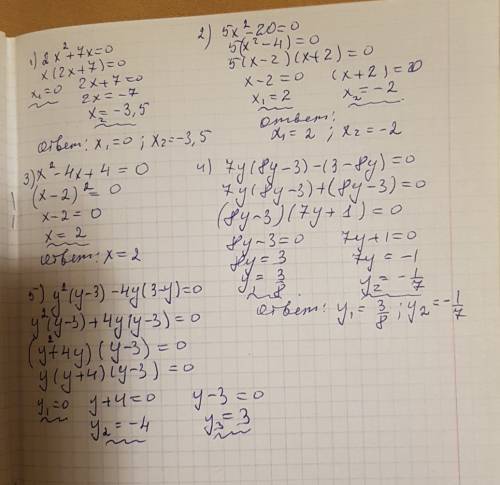 1) 2x²+7x=0
x(2x+7)=0
x₁=0 2x+7=0
2x=-7
x₂=-3,5
Ответ: x₁=0 ; x₂=-3,5
2) 5x²-20=0
5(x²-4)=0
5(x-2)(x+2)=0
x-2=0 (x+2)=0
x₁=2 x₂=-2
Ответ:
x₁=2 ; x₂=-2
3) x²-4x+4=0
(x-2)²=0
x-2=0
x=2
Ответ: x=2
4) 7y(8y-3)-(3-8y)=0
7y(8y-3)+(8y-3)=0
(8y-3)(7y+1)=0
8y-3=0 7y+1=0
8y=3 7y=-1
y₁=3/8 y₂=-1/7
Ответ: y₁=3/8 ; y₂=-1/7
5) y²(y-3)-4y(3-y)=0
y²(y-3)+4y(y-3)=0
(y²+4y)(y-3)=0
y(y+4)(y-3)=0
y₁=0 y+4=0 y-3=0
y₂=-4 y₃=3